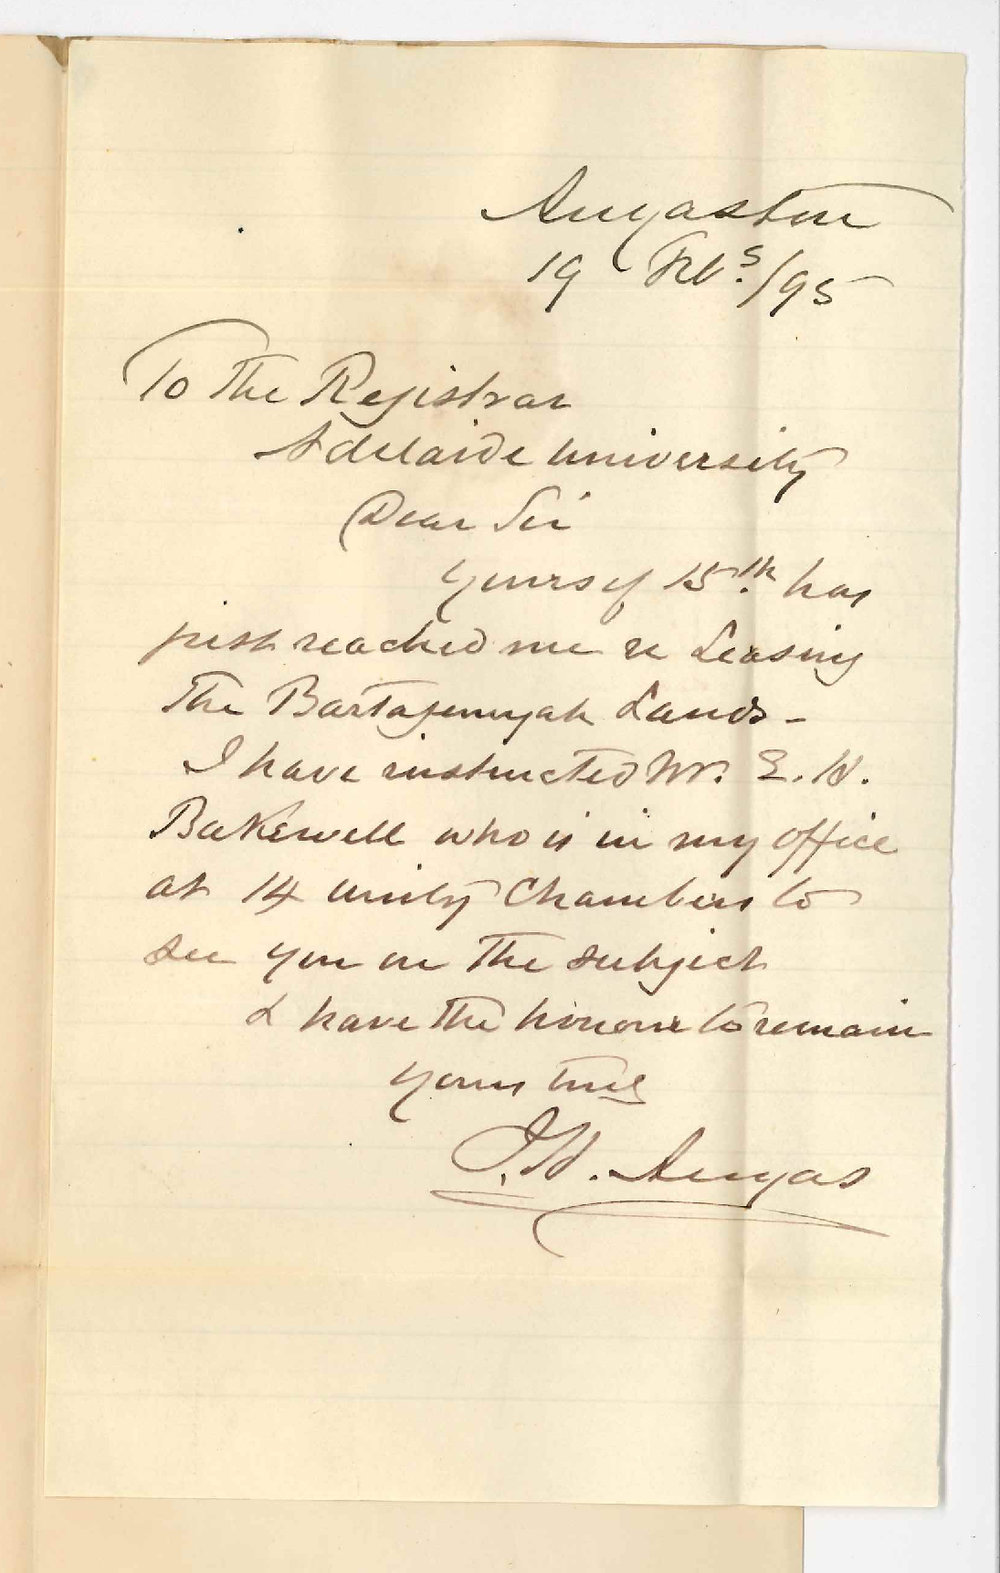 Angaston
19 Feby./95
To The Registrar
Adelaide University
Dear Sir
Yours of 15th. has
just reached me re Leasing
The Bartagunyah Lands -
I have instructed Mr. E. H.
Bakewell who is in my office
at 14 Unity Chambers to
see you on The subject
I have the honour to remain
Yours truly
J. H. Angas